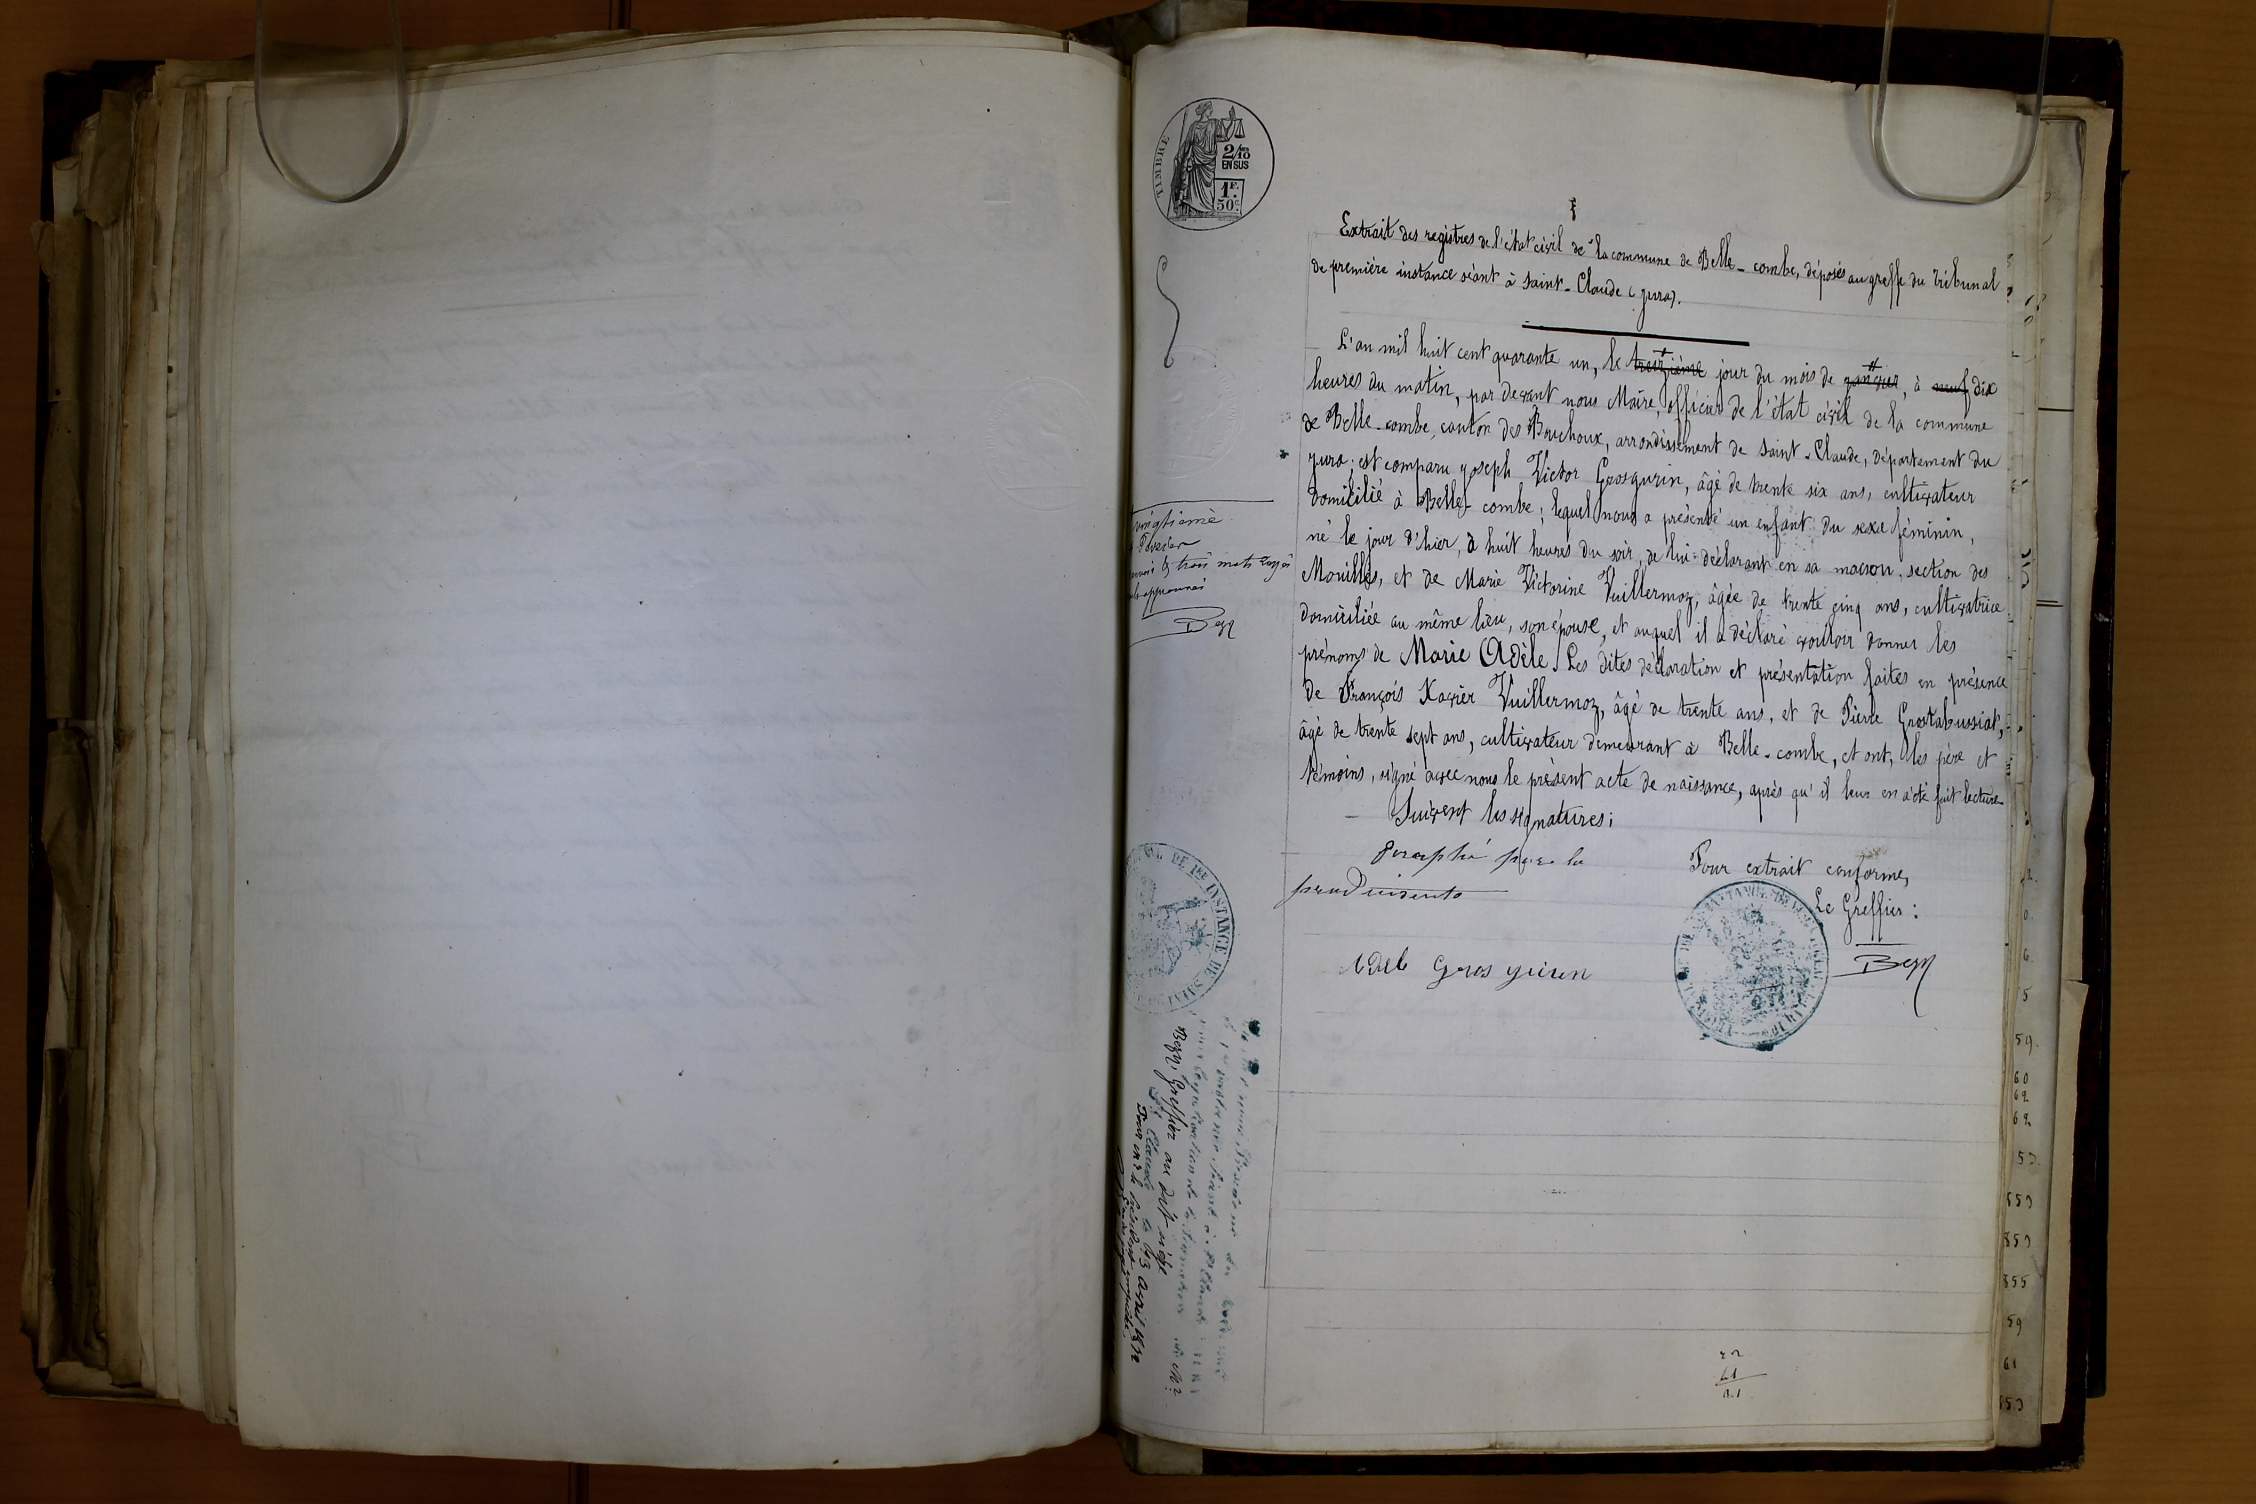 TIMBRE
2/10 EN SUS
1F. 50c.
Extrait des registres de l'état civil de la commune de Belle-combe, déposés au greffe du tribunal
de première instance séant à Saint-Claude (Jura).
L'an mil huit cent quarante un, le treizième jour du mois de janvier, à neuf dix
heures du matin, par devant nous Maire, officier de l'état civil de la commune
de Belle-combe, canton des Bouchoux, arrondissement de Saint-Claude, département du
Jura; est comparu Joseph Victor Grosgurin, âgé de trente six ans, cultivateur
domicilié à Belle-combe; lequel nous a présenté un enfant du sexe féminin,
né le jour d'hier, à huit heures du soir, de lui déclarant en sa maison, section des
Mouilles, et de Marie Victorine Vuillermoz, âgée de trente cinq ans, cultivatrice
domiciliée au même lieu, son épouse, et auquel il a déclaré vouloir donner les
prénoms de Marie Adèle. Les dites déclaration et présentation faites en présence
de François Xavier Vuillermoz, âgé de trente ans, et de Pierre Grostabussiat,
âgé de trente sept ans, cultivateur demeurant à Belle-combe, et ont, les père et
témoins, signé avec nous le présent acte de naissance, après qu'il leur en a été fait lecture
Suivent les signatures;
vingtième
trois mots rayés
approuvés
Paraphé par la
Pour extrait conforme,
Le Greffier:
DE 1ERE INSTANCE DE SAINT
Greffier au dit siège
St Claude le 23 avril